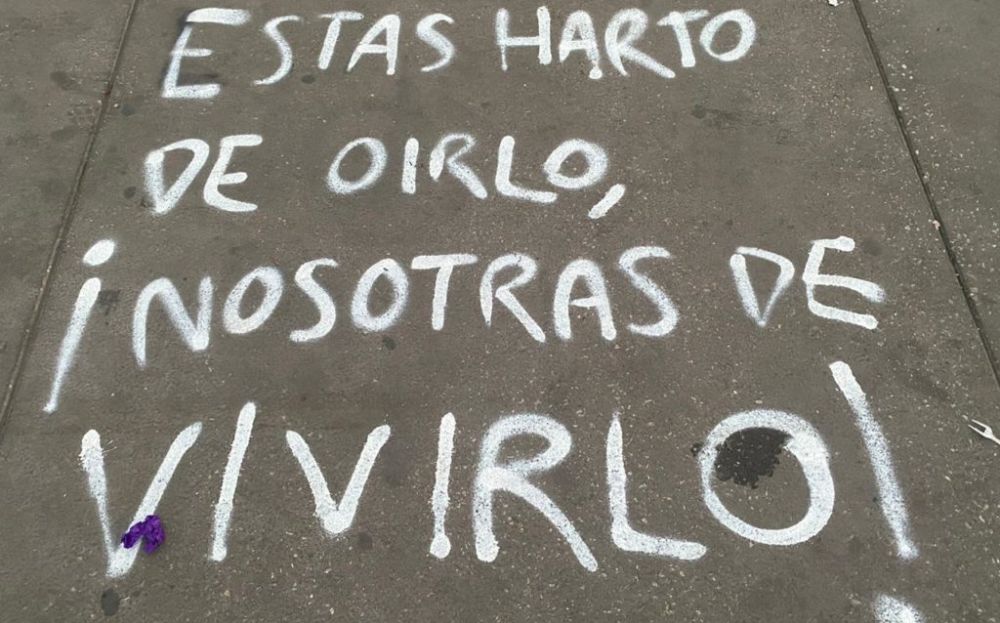 ESTAS HARTO
DE OIRLO,
¡NOSOTRAS DE
VIVIRLO!